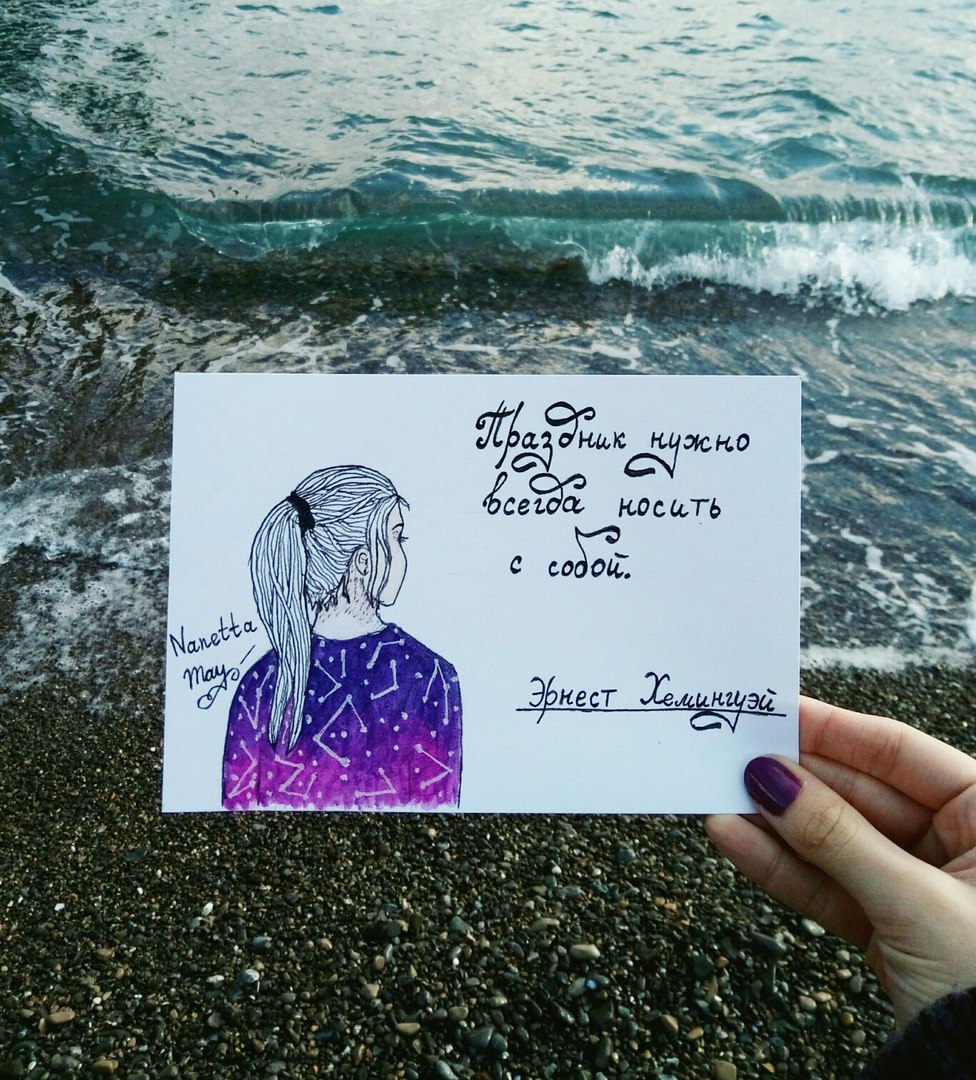 Праздник нужно
всегда носить
с собой.
Эрнест Хемингуэй
Nanetta
May